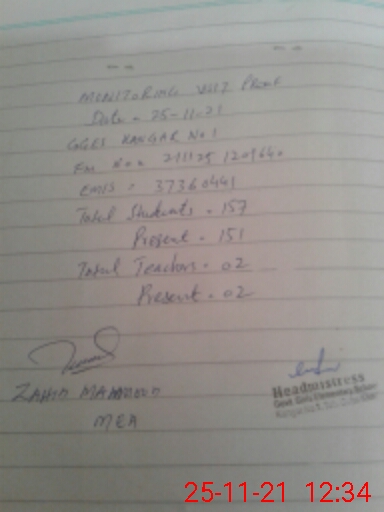 MONITORING VISIT PROOF
Date = 25-11-21
GGES KANGAR No 1
EMIS = 37360441
Total Students = 157
Present = 151
Total Teachers = 02
Present = 02
ZAHID MAHMOOD
MEA
Headmistress
Govt. Girls Elementary School
25-11-21 12:34